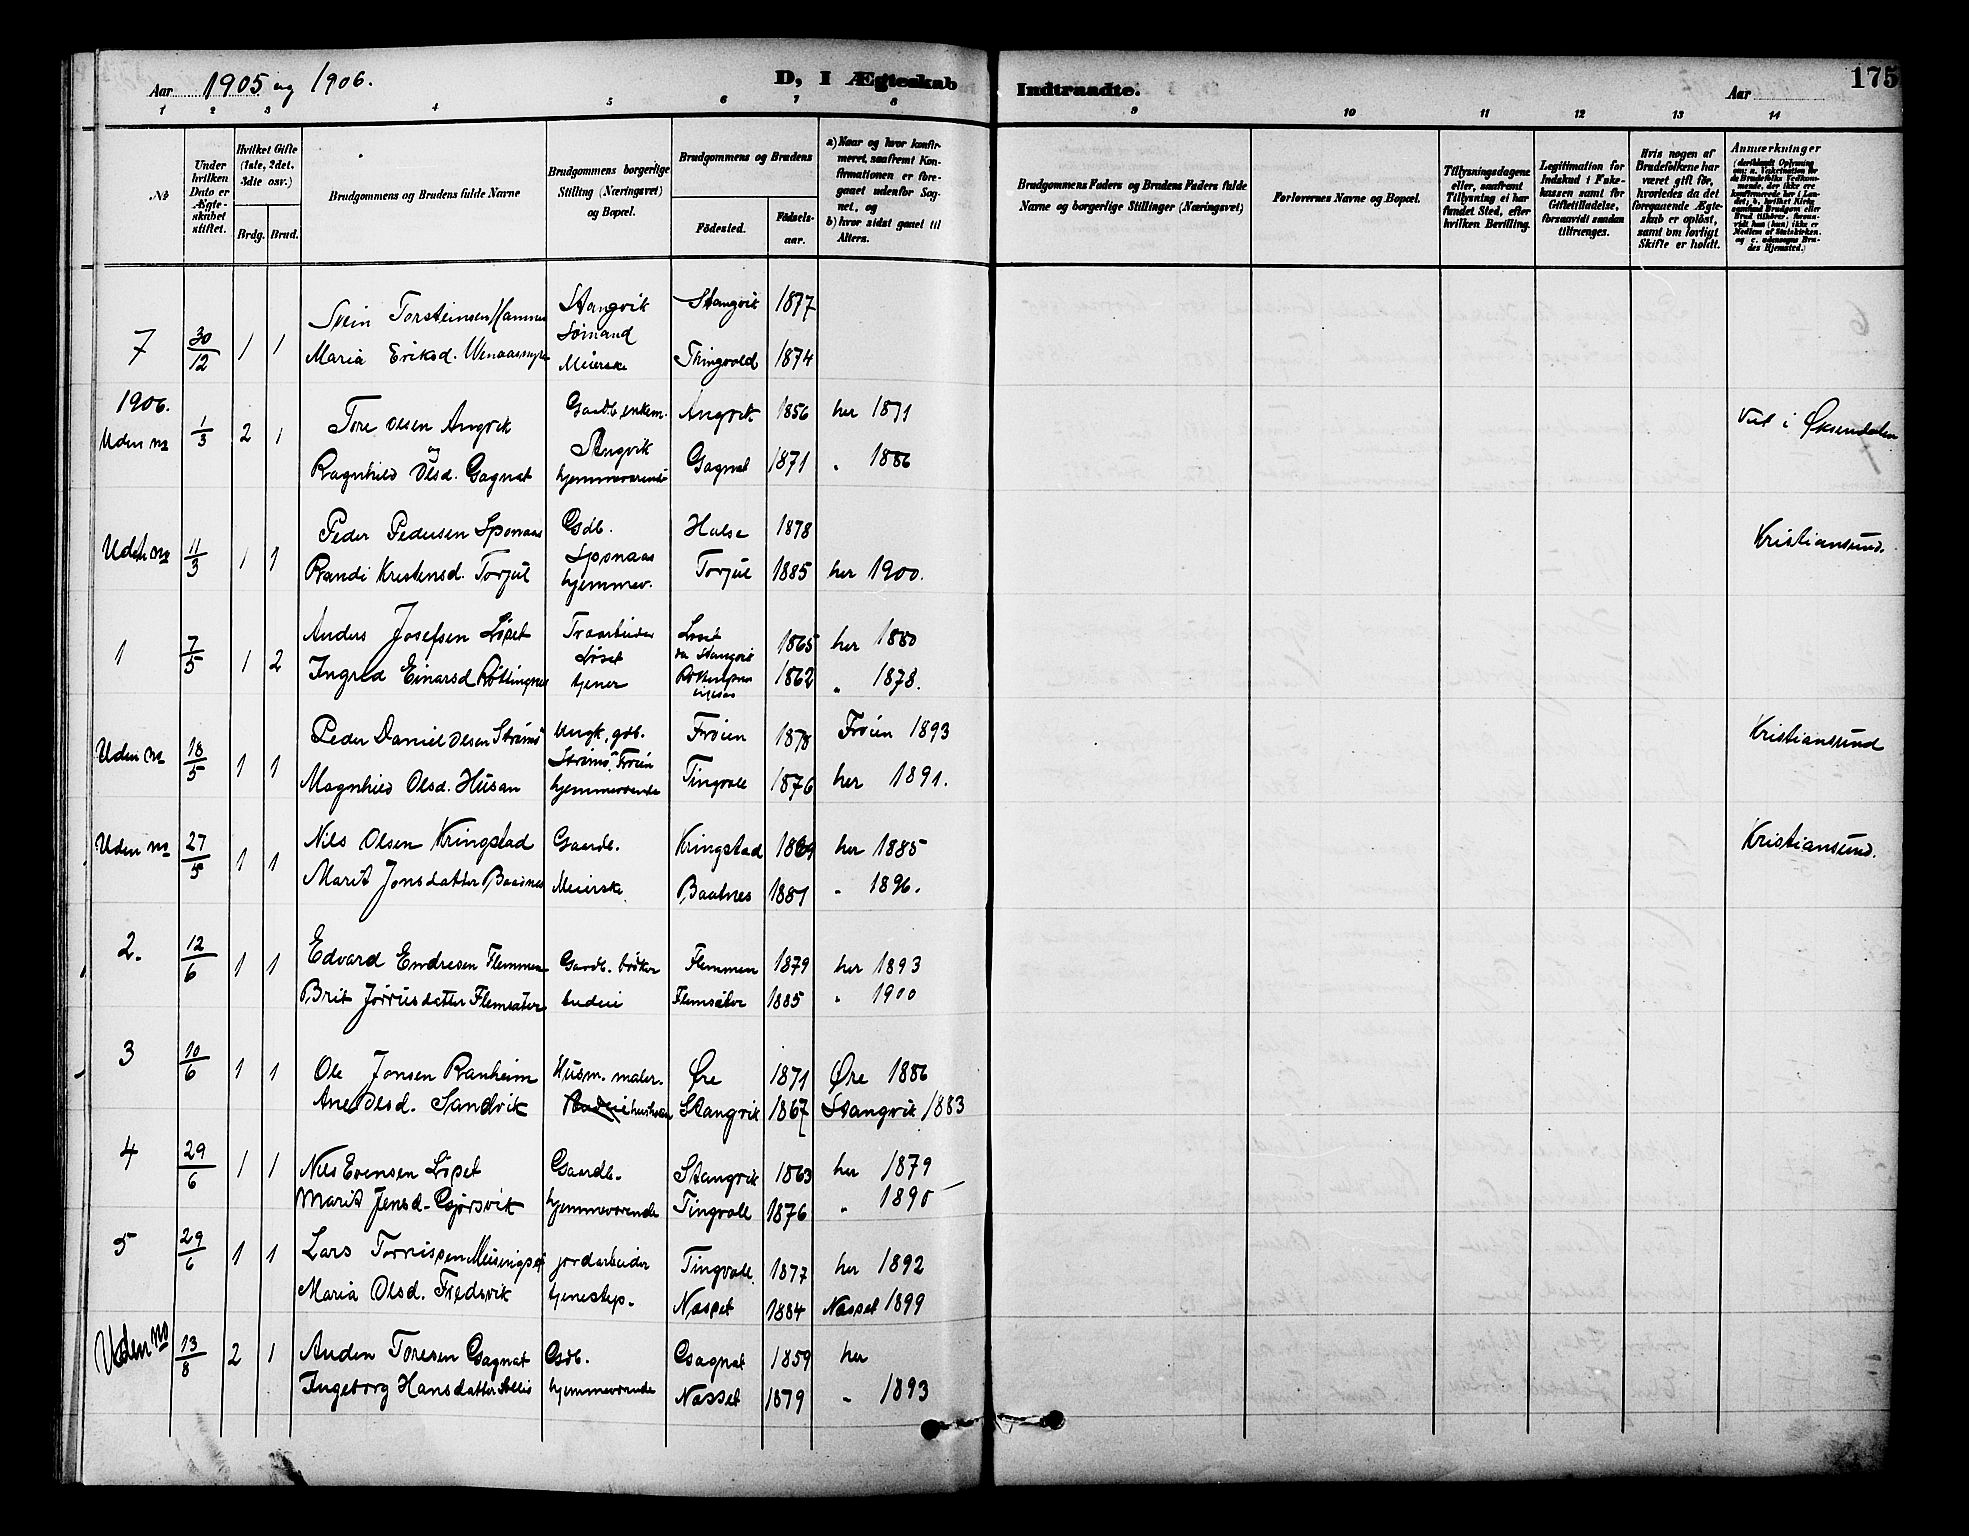 Aar 1905 og 1906.
D, I Ægteskab Indtraadte.
Aar
175
1 2 3 4 5 6 7 8 9 10 11 12 13 14
No
Under hvilken Dato er Ægteskabet stiftet.
Hvilket Gifte (1ste, 2det, 3die osv.)
Brdg. Brud.
Brudgommens og Brudens fulde Navne
Brudgommens borgerlige Stilling (Næringsvei) og Bopæl.
Brudgommens og Brudens
Fødested. Fødselsaar.
a) Naar og hvor konfirmeret, saafremt Konfirmationen er foregaaet udenfor Sognet, og
b) hvor sidst gaaet til Alters.
Brudgommens Faders og Brudens Faders fulde Navne og borgerlige Stillinger (Næringsvei)
Forlovernes Navne og Bopæl.
Tillysningsdagene eller, saafremt Tillysning ei har fundet Sted, efter hvilken Bevilling.
Legitimation for Indskud i Enkekassen samt for Giftetilladelse, forsaavidt saadan tiltrænges.
Hvis nogen af Brudefolkene har været gift før, hvorledes da det foregaaende Ægteskab er opløst, samt om lovligt Skifte er holdt.
Anmærkninger
7 30/12 1 1 Svein Torsteinsen Hamnes Stangvik Sømand Stangvik 1877
Maria Eriksd. Meierske Thingvold 1874
1906.
Uden no 1/3 2 1 Tore Olsen Angvik Gaardb. enkem. Angvik 1856 her 1871 Viet i Øksendalen
og
Ragnhild Olsd. Gagnat Angvik hjemmeværende Gagnat 1871 " 1886
Uden no 11/3 1 1 Peder Pedersen Sponaas Gdb. Sponaas Halse 1878 Kristiansund.
Randi Kristensd. Torjul hjemmev. Torjul 1885 her 1900.
1 7/5 1 2 Anders Josefsen Løset Løset Løset 1865 her 1880
Ingrid Einarsd tjener 1862 " 1878.
Uden no 18/5 1 1 Peder Daniel Olsen Strømø Ungk. gdb. Strømø, Frøien Frøien 1878 Frøien 1893 Kristiansund
Magnhild Olsd. Husan hjemmeværende Tingvoll 1876 her 1891.
Uden no 27/5 1 1 Nils Olsen Kringstad Gaardb. Kringstad 1869 her 1885 Kristiansund.
Marit Jonsdatter Baasnes Meierske Baalnes 1881 " 1896.
2. 12/6 1 1 Edvard Endresen Flemmen Gaardb. bøker Flemmen 1879 her 1893
Brit Flemsæter budeie Flemsæter 1885 " 1900
3 10/6 1 1 Ole Jonsen Ranheim Husm. maler. Øre 1871 Øre 1886
Ane Olsd. Sandvik Stangvik 1867 Stangvik 1883
4 29/6 1 1 Nils Evensen Løset Gaardb. Stangvik 1863 her 1879
Marit Jensd. Gjørsvik hjemmeværende Tingvoll 1876 " 1890
5 29/6 1 1 Lars Meisingset jordarbeider Tingvoll 1877 her 1892
Maria Olsd. Fredsvik tjenestep. Næsset 1884 Næsset 1899
Uden no 13/8 2 1 Anden Toresen Gagnat Gdb. Gagnat 1859 her
Ingeborg Hansdatter hjemmeværende Næsset 1879 " 1893